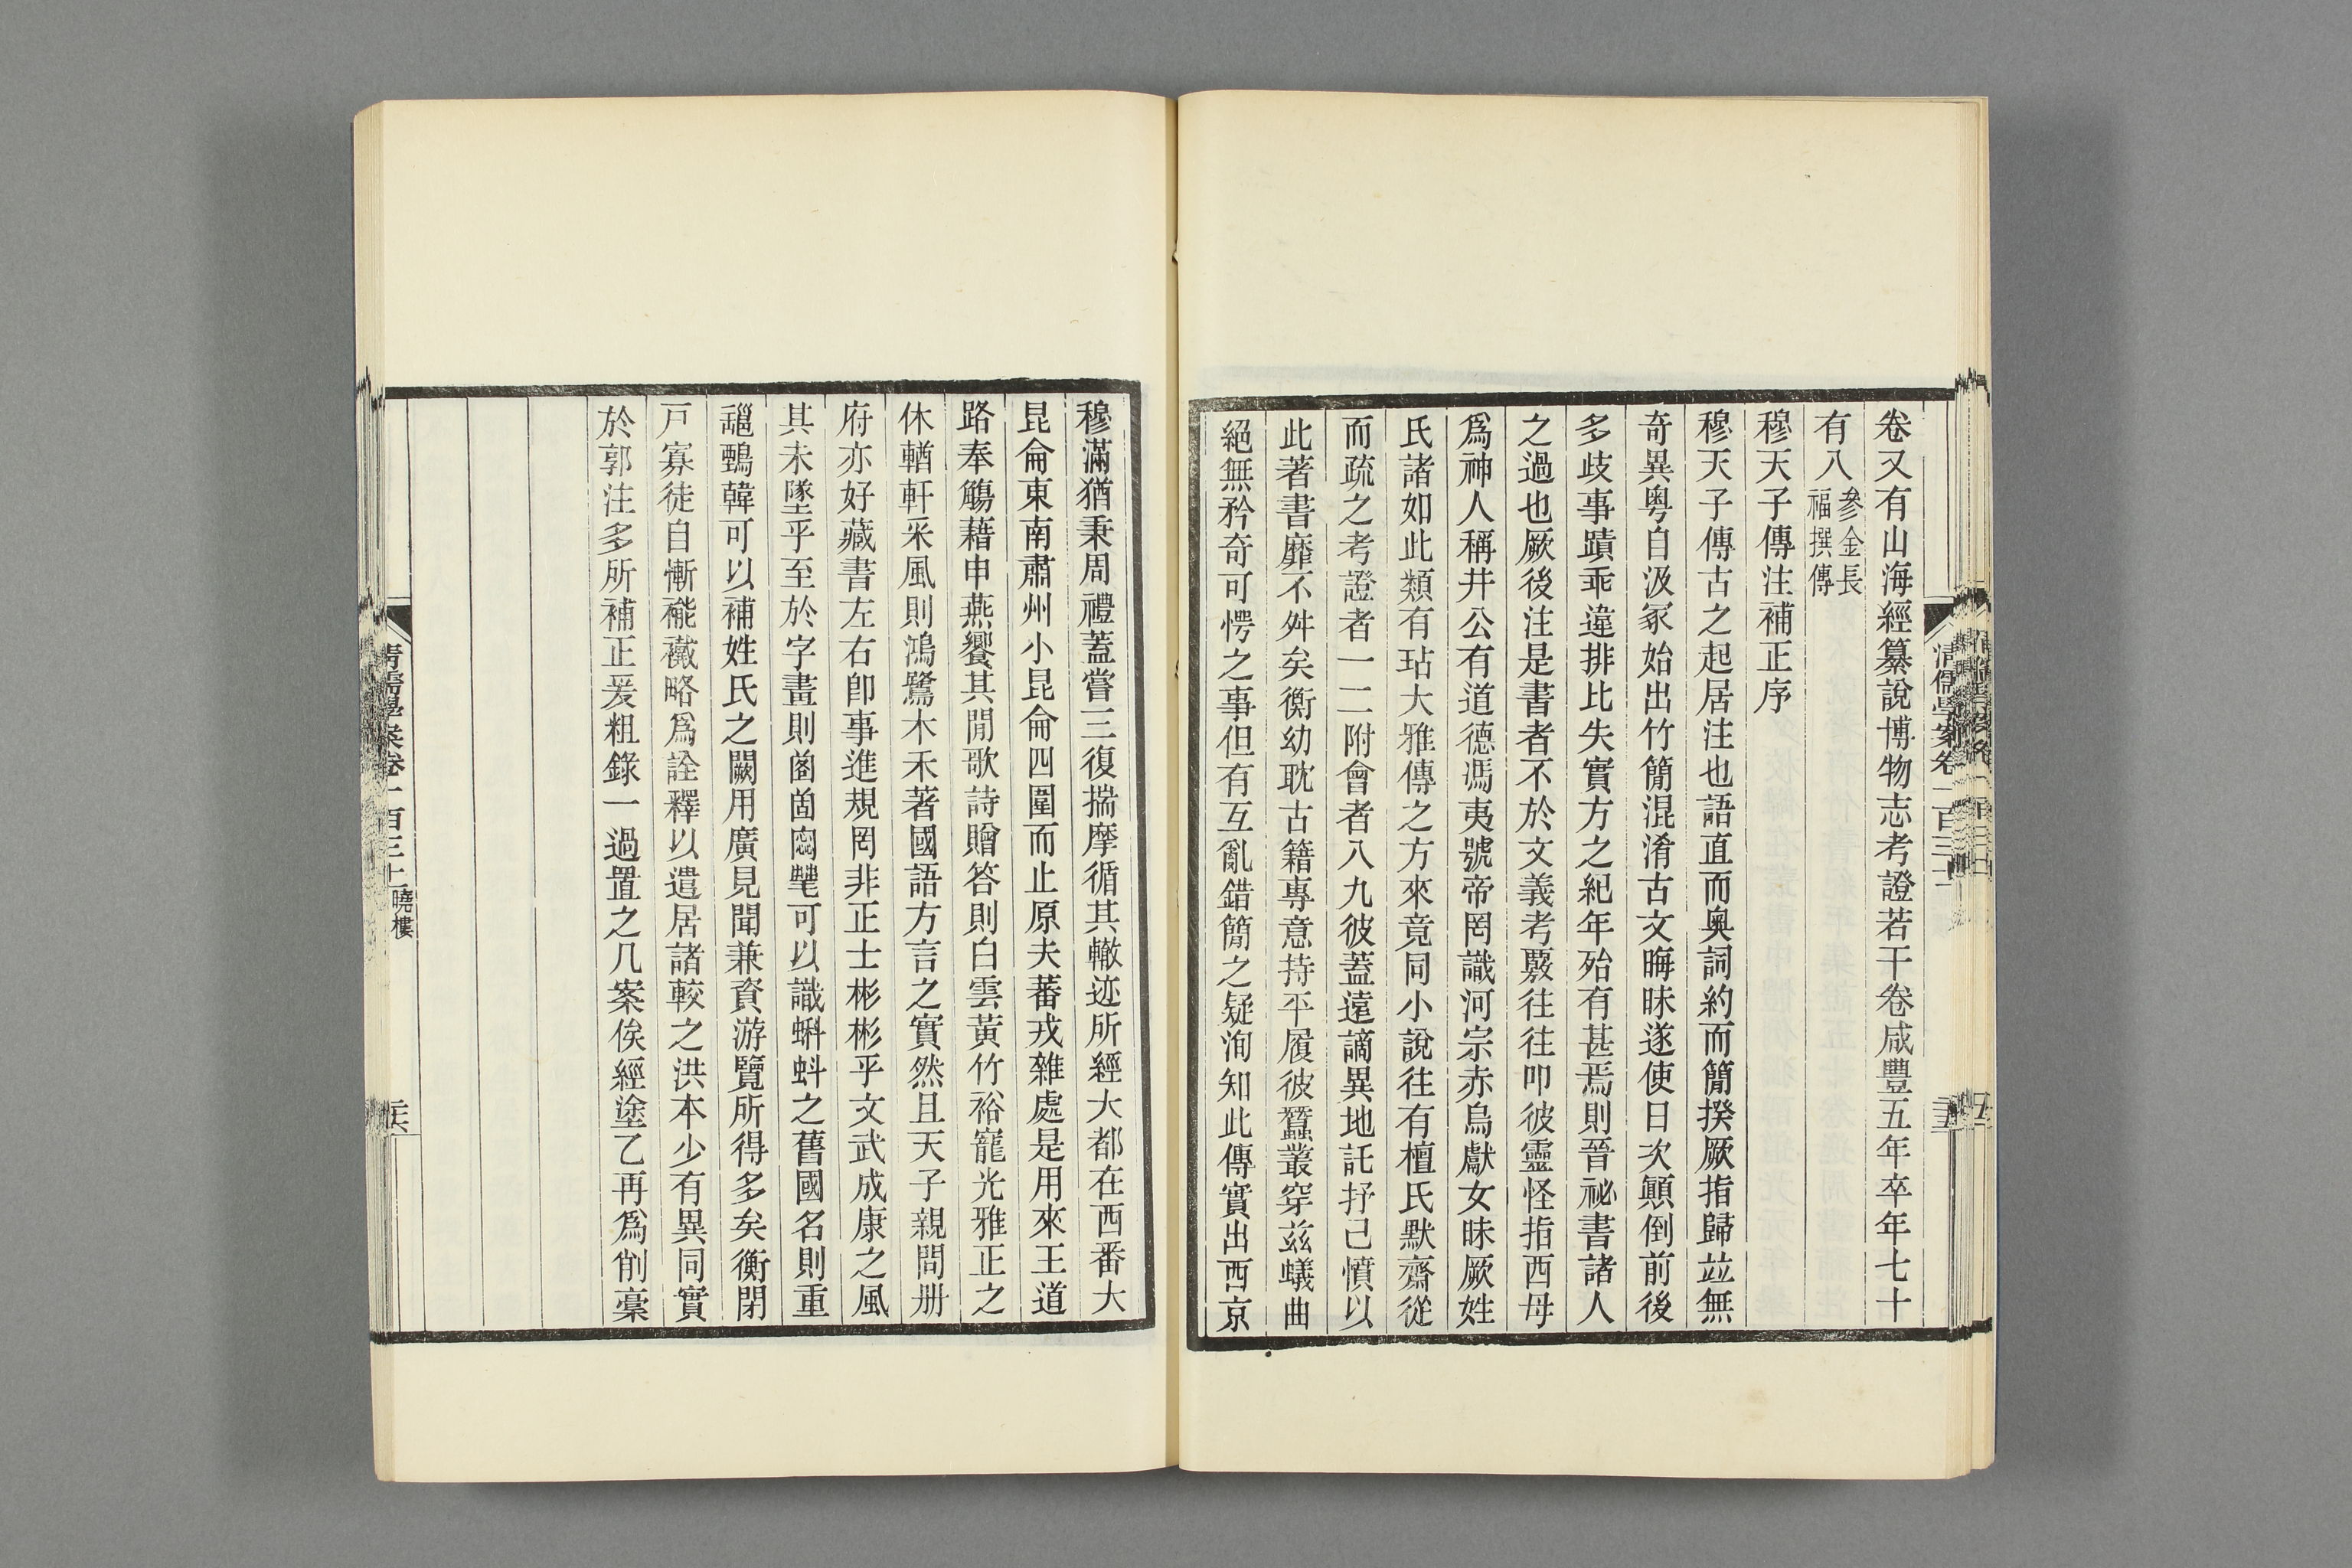 卷又有山海經纂說博物志考證若干卷咸豐五年卒年七十
有八參金長福撰傳
穆天子傳注補正序
穆天子傳古之起居注也語直而奧詞約而簡揆厥指歸竝無
奇異粵自汲冢始出竹簡混淆古文晦昧遂使日次顛倒前後
多歧事蹟乖違排比失實方之紀年殆有甚焉則晉祕書諸人
之過也厥後注是書者不於文義考覈往往叩彼靈怪指西母
爲神人稱井公有道德馮夷號帝罔識河宗赤烏獻女昧厥姓
氏諸如此類有玷大雅傳之方來竟同小說往有檀氏默齋從
而疏之考證者一二附會者八九彼蓋遠謫異地託抒己憤以
此著書靡不舛矣衡幼耽古籍專意持平履彼蠶叢穿茲蟻曲
絕無矜奇可愕之事但有互亂錯簡之疑洵知此傳實出西京
穆滿猶秉周禮蓋嘗三復揣摩循其轍迹所經大都在西番大
昆侖東南肅州小昆侖四圍而止原夫蕃戎雜處是用來王道
路奉觴藉申燕饗其閒歌詩贈答則白雲黃竹裕寵光雅正之
休輶軒采風則鴻鷺木禾著國語方言之實然且天子親問册
府亦好藏書左右卽事進規罔非正士彬彬乎文武成康之風
其未墜乎至於字畫則可以識蝌蚪之舊國名則重
䣝鵶韓可以補姓氏之闕用廣見聞兼資游覽所得多矣衡閉
戸寡徒自慚褦襶略爲詮釋以遣居諸較之洪本少有異同實
於郭注多所補正爰粗錄一過置之几案俟經塗乙再爲削稾
清儒學案卷一百三十
曉樓